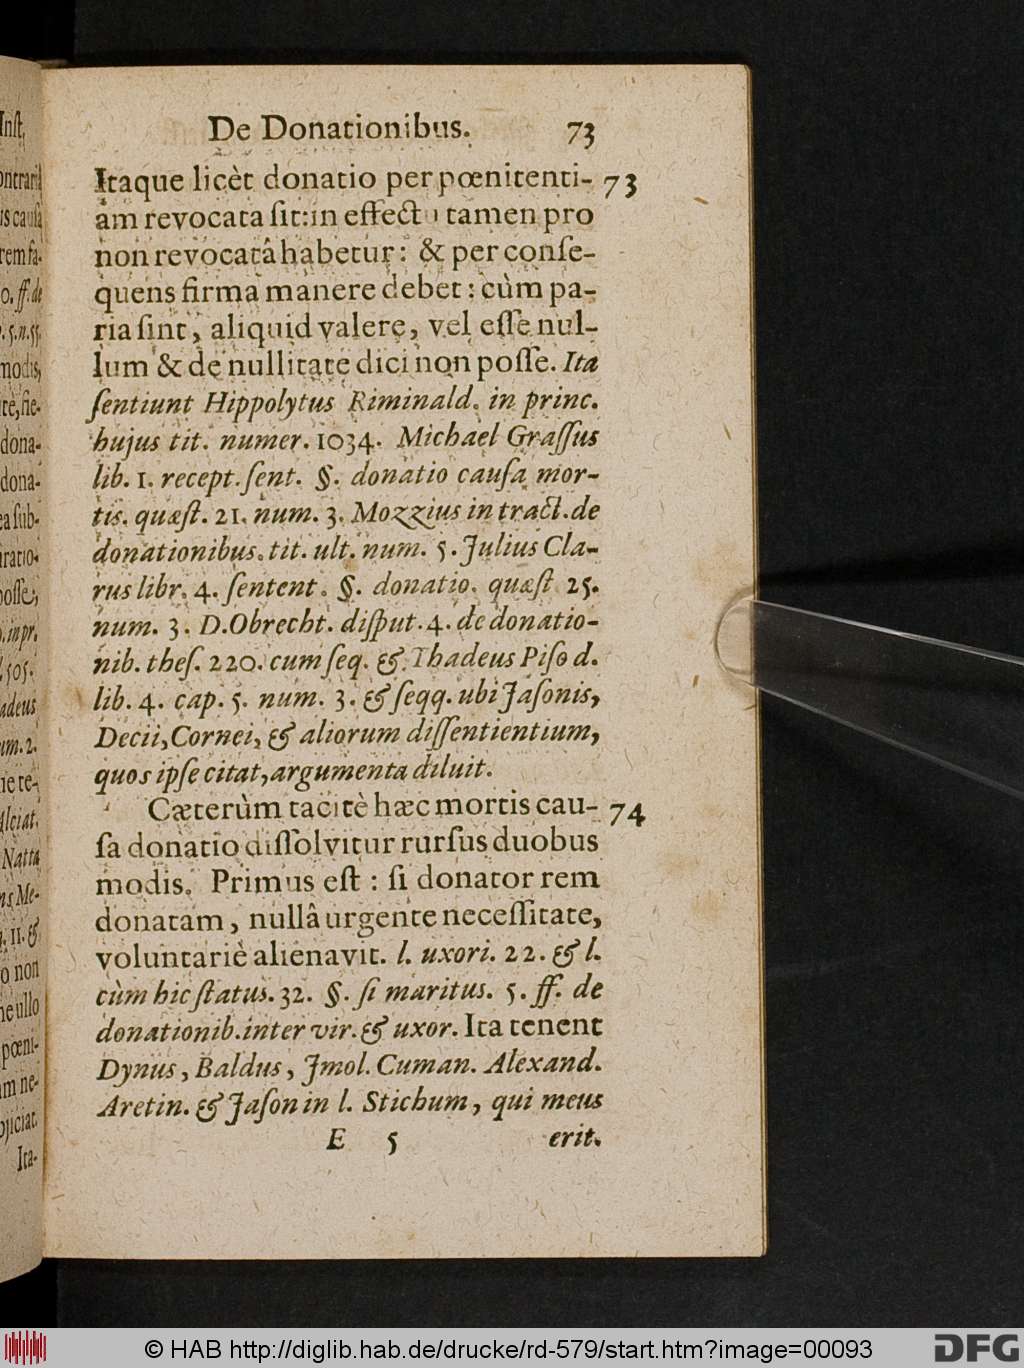 De Donationibus. 73
Itaque licèt donatio per pœnitenti- 73
am revocata ſit: in effectu tamen pro
non revocatâ habetur: & per conſe-
quens firma manere debet: cùm pa-
ria ſint, aliquid valere, vel eſſe nul-
lum & de nullitate dici non poſſe. Ita
ſentiunt Hippolytus Riminald. in princ.
hujus tit. numer. 1034. Michael Graſſus
lib. 1. recept. ſent. §. donatio cauſa mor-
tis. quæſt. 21. num. 3. Mozzius in tract. de
donationibus. tit. ult. num. 5. Julius Cla-
rus libr. 4. ſentent. §. donatio. quæſt 25.
num. 3. D. Obrecht. diſput. 4. de donatio-
nib. theſ. 220. cum ſeq. & Thadeus Piſo d.
lib. 4. cap. 5. num. 3. & ſeqq. ubi Jaſonis,
Decii, Cornei, & aliorum diſſentientium,
quos ipſe citat, argumenta diluit.
Cæterùm tacitè hæc mortis cau- 74
ſa donatio diſſolvitur rurſus duobus
modis. Primus eſt: ſi donator rem
donatam, nullâ urgente neceſſitate,
voluntariè alienavit. l. uxori. 22. & l.
cùm hic ſtatus. 32. §. ſi maritus. 5. ff. de
donationib. inter vir. & uxor. Ita tenent
Dynus, Baldus, Jmol. Cuman. Alexand.
Aretin. & Jaſon in l. Stichum, qui meus
E 5 erit.
© HAB http://diglib.hab.de/drucke/rd-579/start.htm?image=00093
DFG